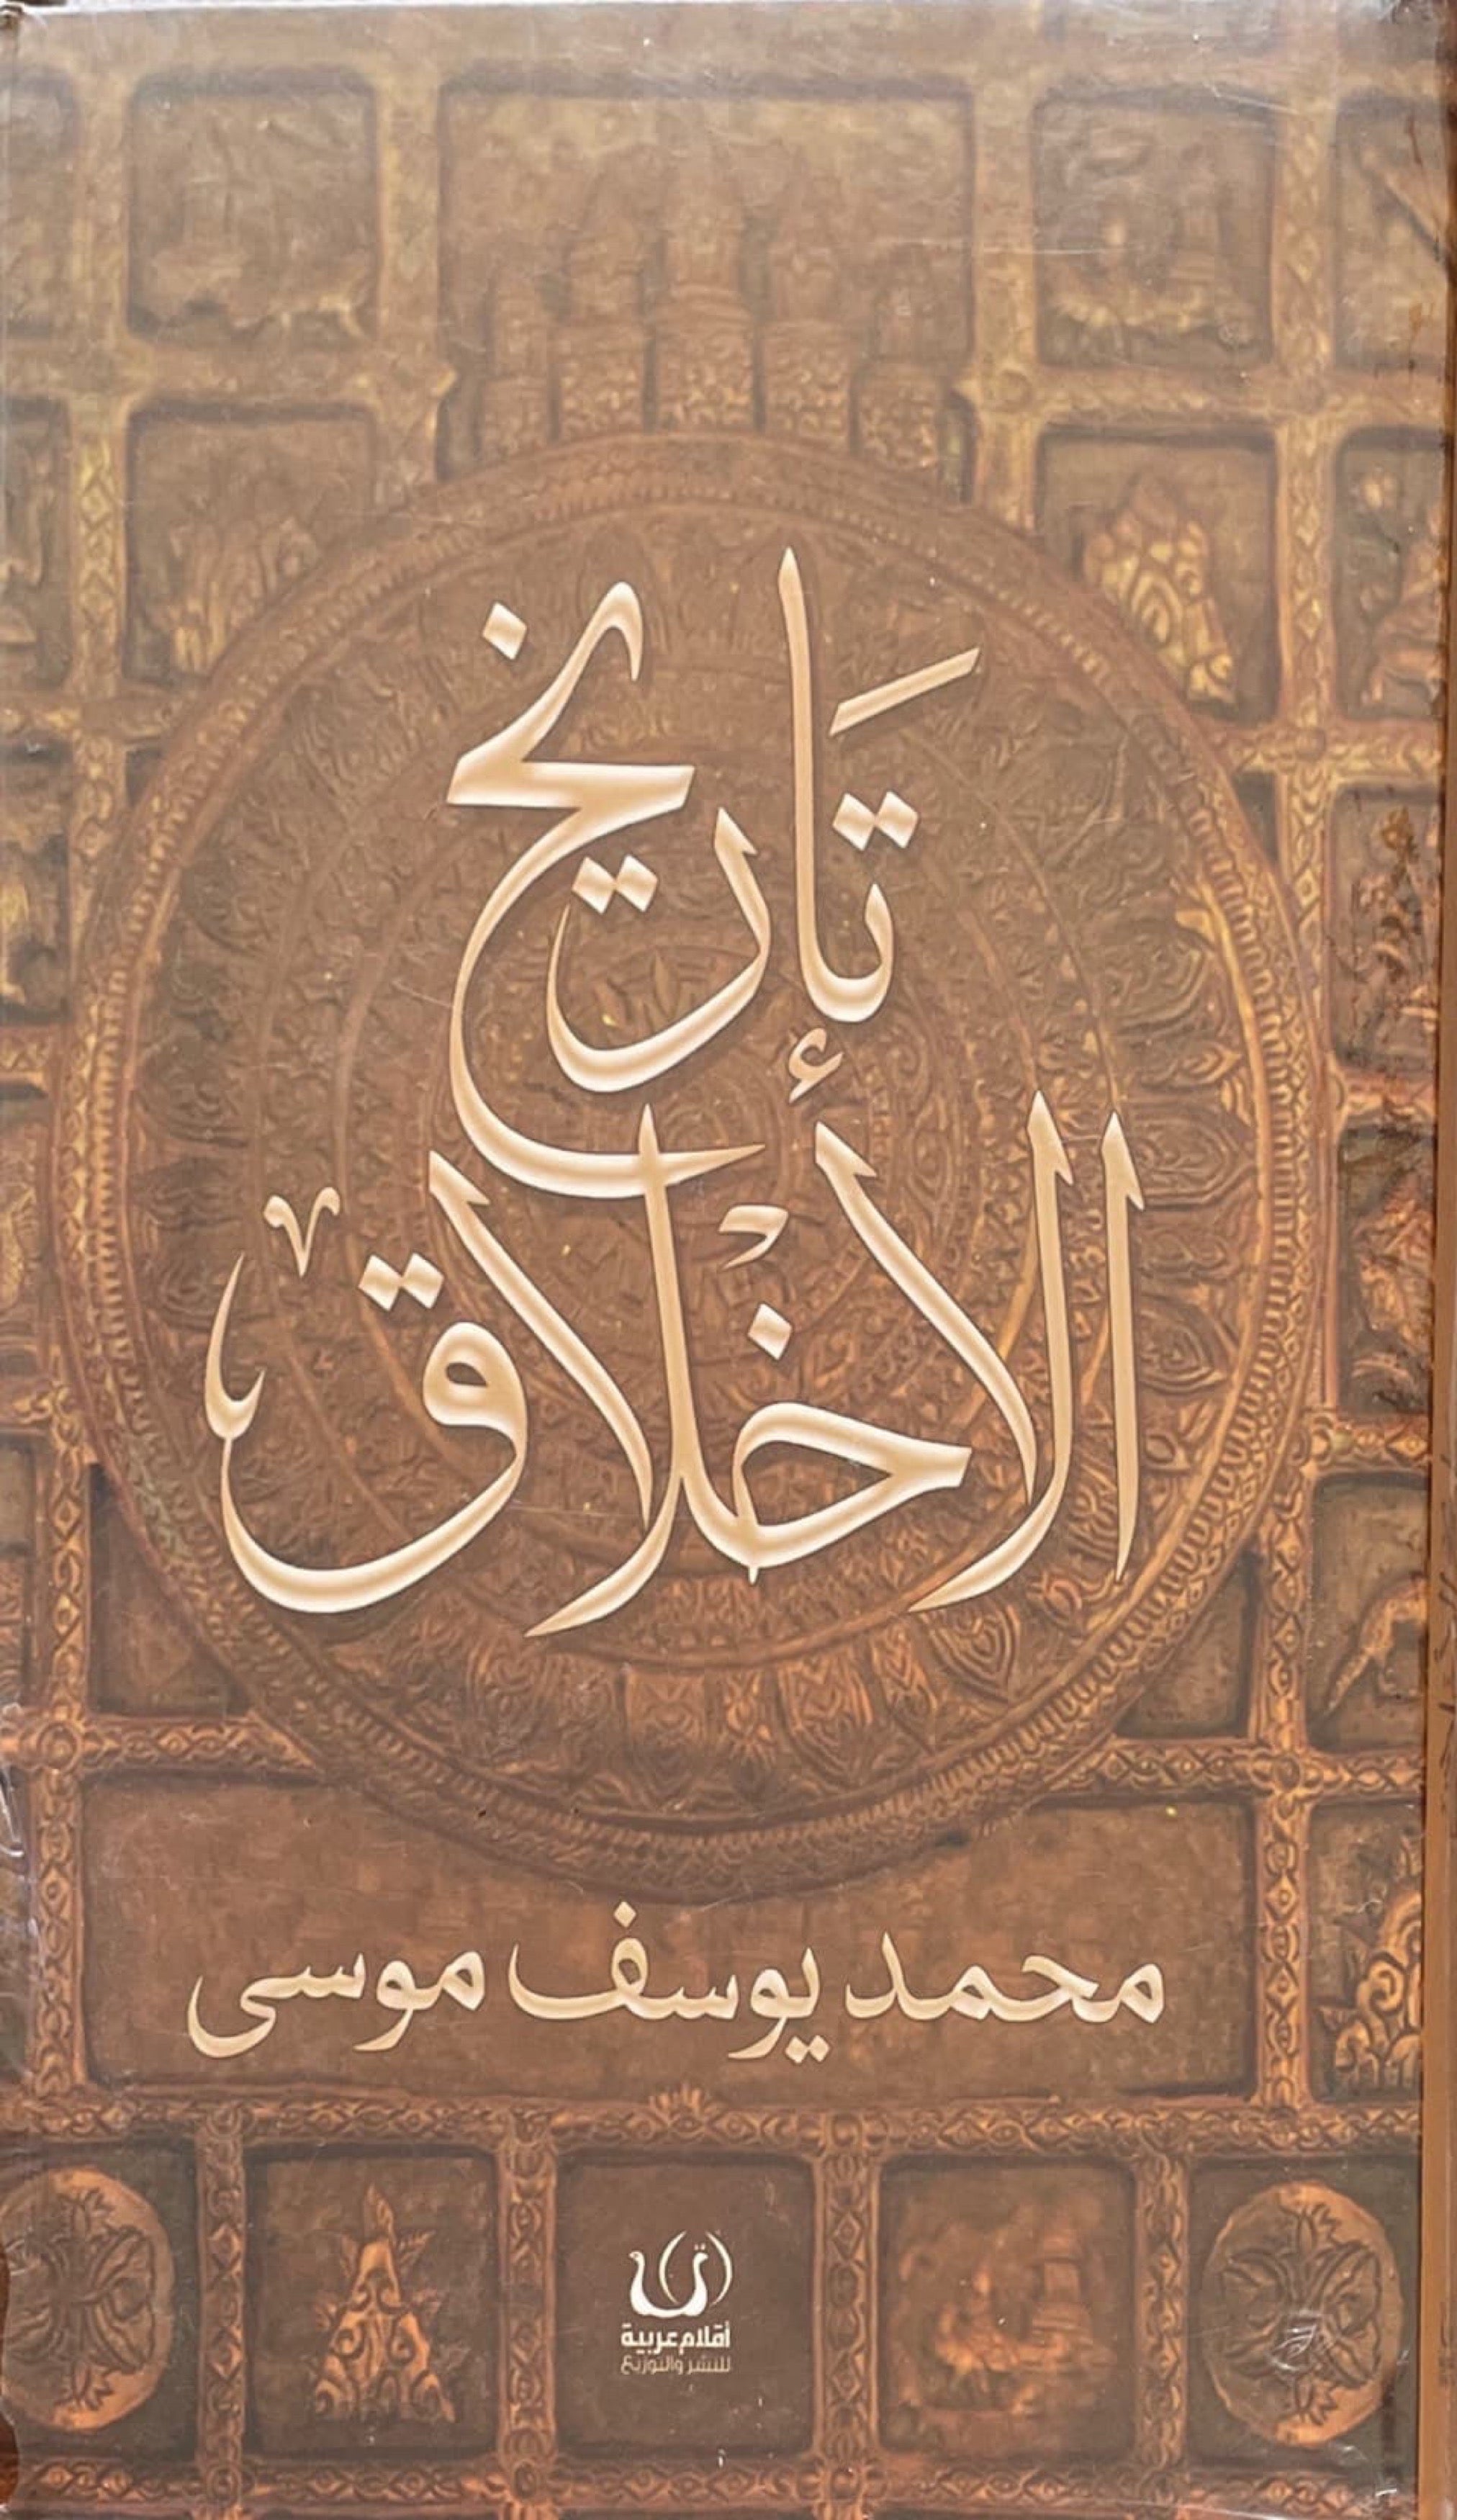 تَاريخ
الأخْلاق
محمد يوسف موسى
أقلام عربية
للنشر والتوزيع